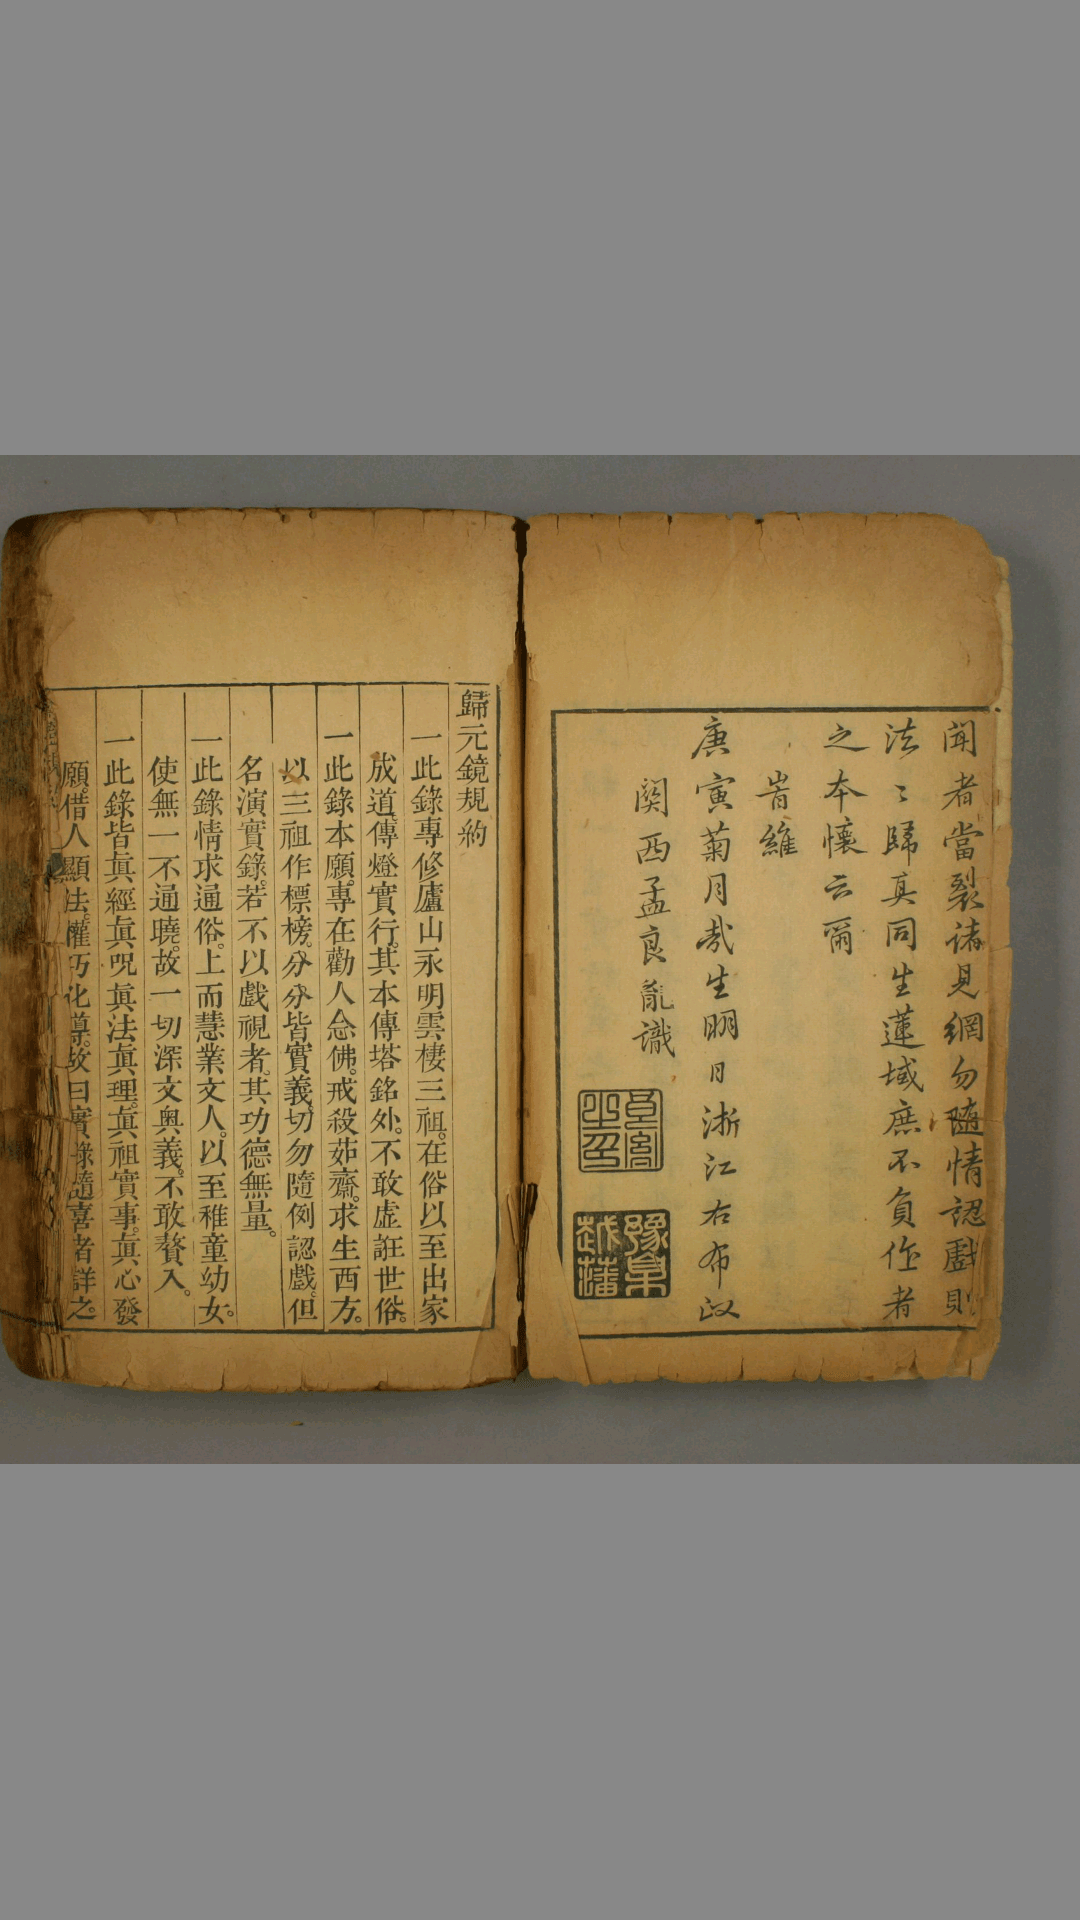 聞者當裂諸見綱勿随情認戲則
法〻歸真同生蓮域庶不負作者
之本懷云爾
旹維
庚寅菊月哉生明日浙江右布政
関西孟良胤識
豫臬越藩
歸元鏡規約
一此錄專修廬山永明雲棲三祖。在俗以至出家
成道傳燈實行。其本傳塔銘外。不敢虛誑世俗。
一此錄本願。專在勸人念佛。戒殺茹齋。求生西方。
以三祖作標榜。分分皆實義。切勿隨例認戲。但
名演實錄。若不以戲視者。其功德無量。
一此錄情求通俗。上而慧業文人。以至稚童幼女。
使無一不通曉。故一切深文奧義。不敢贅入。
一此錄皆眞經眞呪眞法眞理。眞祖實事。眞心發
願。借人顯法。權巧化導。故曰實錄。隨喜者詳之。